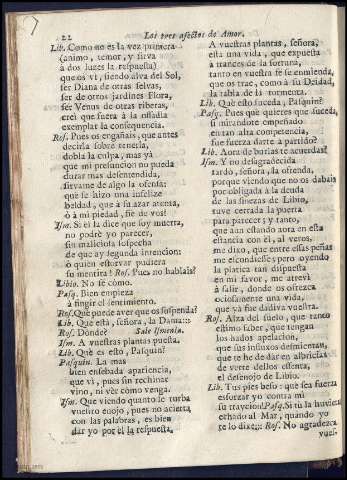 22 Los tres afectos de Amor.
Lib. Como no es la vez primera
(animo, temor, y sirva
à dos luzes la respuesta)
que os vi, siendo alva del Sol,
ser Diana de otras selvas,
ser de otros jardines Flora,
ser Venus de otras riberas,
crei que fuera à la osadia
exemplar la consequencia.
Ros. Pues os engañais, que antes
decirla sobre tenerla,
dobla la culpa, mas yà
que mi presuncion no pueda
durar mas desentendida,
sirvame de algo la ofensa:
que se hizo una infelize
beldad, que à su azar atenta,
ò à mi piedad, fie de vos!
Ism. Si èl la dice que soy muerta,
no podrè yo parecer,
sin maliciosa sospecha
de que ay segunda intencion:
ò quien estorvar pudiera
su mentira! Ros. Pues no hablais?
Libio. No sè còmo.
Pasq. Bien empieza
à fingir el sentimiento.
Ros. Què puede aver que os suspenda?
Lib. Que està, señora, la Dama:::
Ros. Dònde? Sale Ismenia.
Ism. A vuestras plantas puesta.
Lib. Què es esto, Pasquin?
Pasquin. La mas
bien ensebada apariencia,
que vi, pues sin rechinar
vino, ni vèr còmo venga.
Ism. Que viendo quanto se turba
vuestro enojo, pues no acierta
con las palabras, es bien
dar yo por èl la respuesta.
A vuestras plantas, señora,
està una vida, que expuesta
à trances de la fortuna,
tanto en vuestra fè se enmienda,
que os trae, como à su Deidad,
la tabla de la tormenta.
Lib. Què esto suceda, Pasquin?
Pasq. Pues què quieres que suceda,
si mirandote empeñado
en tan alta competencia,
fue fuerza darte à partido?
Lib. Aora de burlas te acuerdas?
Ism. Y no desagradecida
tardo, señora, la ofrenda,
porque viendo que no os dabais
por obligada à la deuda
de las finezas de Libio,
tuve cerrada la puerta
para parecer; y tanto,
que aun estando aora en esta
estancia con èl, al veros,
me dixo, que entre essas peñas
me escondiesse; pero oyendo
la platica tan dispuesta
en mi favor, me atrevì
à salir, donde os ofrezca
ociosamente una vida,
que yà fue dadiva vuestra.
Ros. Alza del suelo, que tanto
estimo saber, que tengan
los hados apelacion,
que sus insultos desmientan,
que te he de dàr en albricias
de verte dellos essenta,
el desenojo de Libio.
Lib. Tus pies beso: què sea fuerza
esforzar yo contra mi
su traycion! Pasq. Si tù la huvieras
echado al Mar, quando yo
te lo dixe::: Ros. No agradezca
vues-